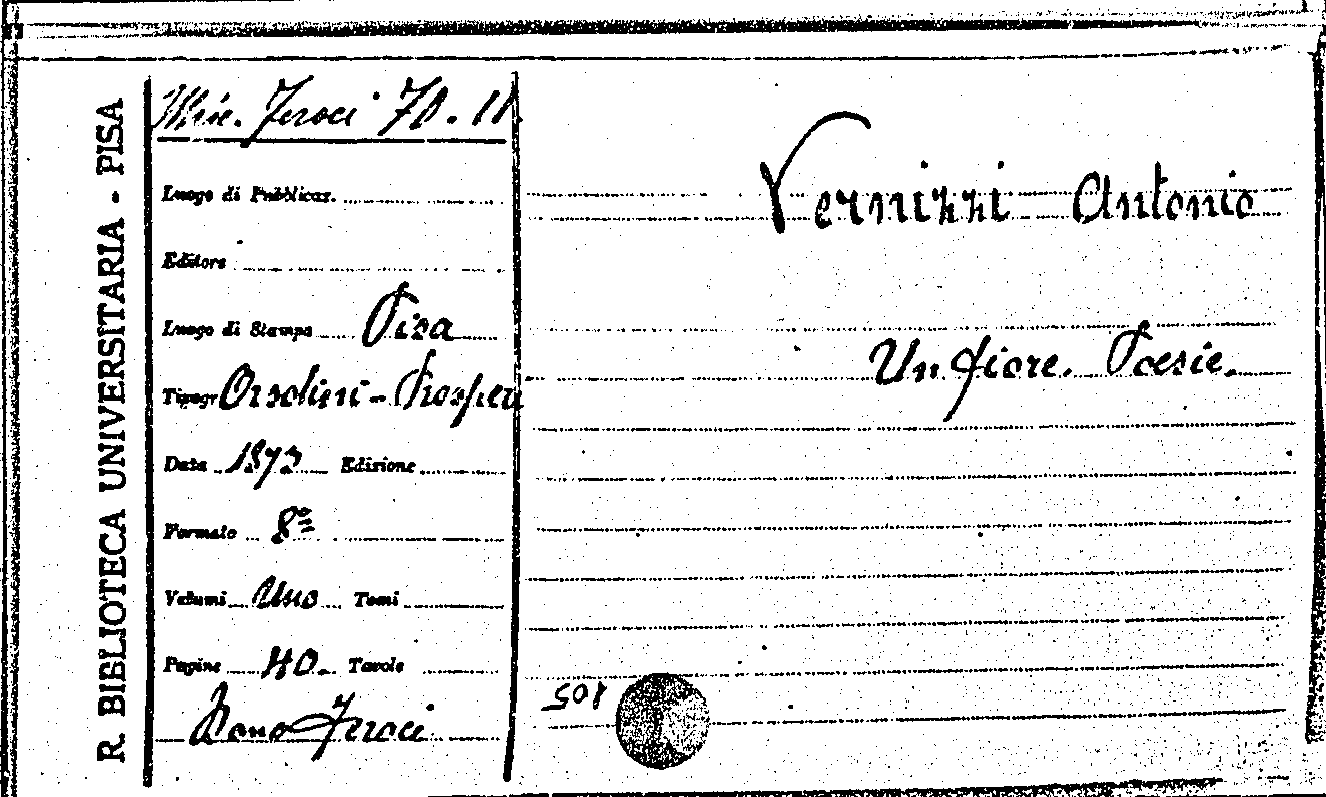 R. BIBLIOTECA UNIVERSITARIA - PISA
Misc. Feroci 70. 11.
Luogo di Pubblicaz.
Editore
Luogo di Stampa Pisa
Tipogr Orsolini-Prosperi
Data 1873 Edizione
Formato 8º
Volumi Uno Tomi
Pagine 40. Tavole
Dono Feroci
Vernizzi Antonio
Un fiore. Poesie.
105